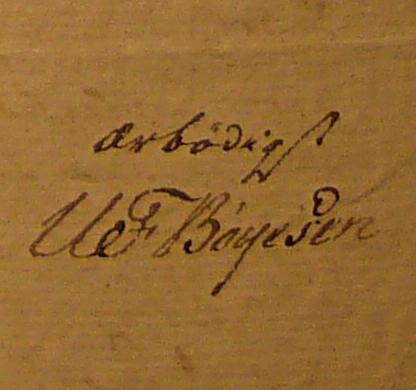 ærbödigst
UeF Böyesen